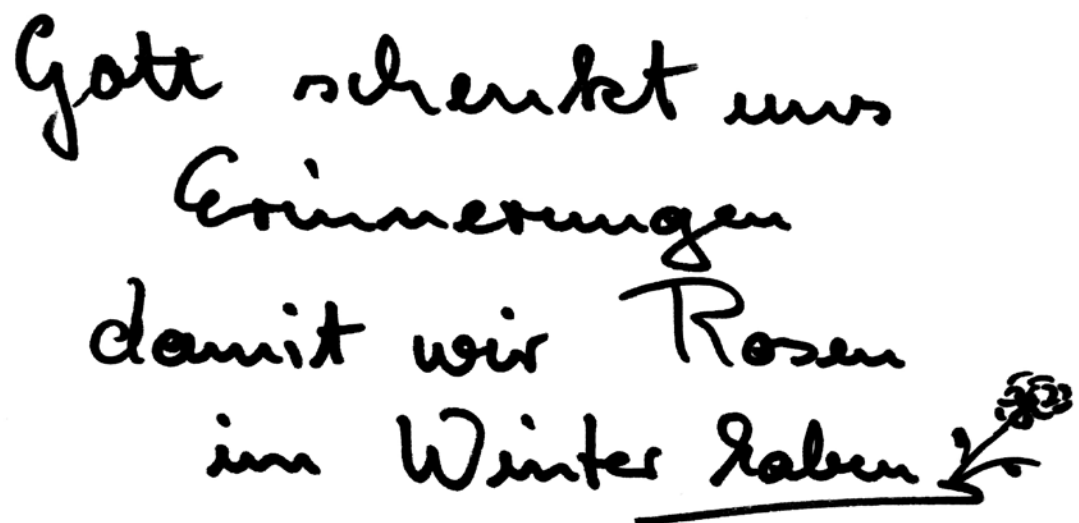 Gott schenkt uns
Erinnerungen
damit wir Rosen
im Winter haben